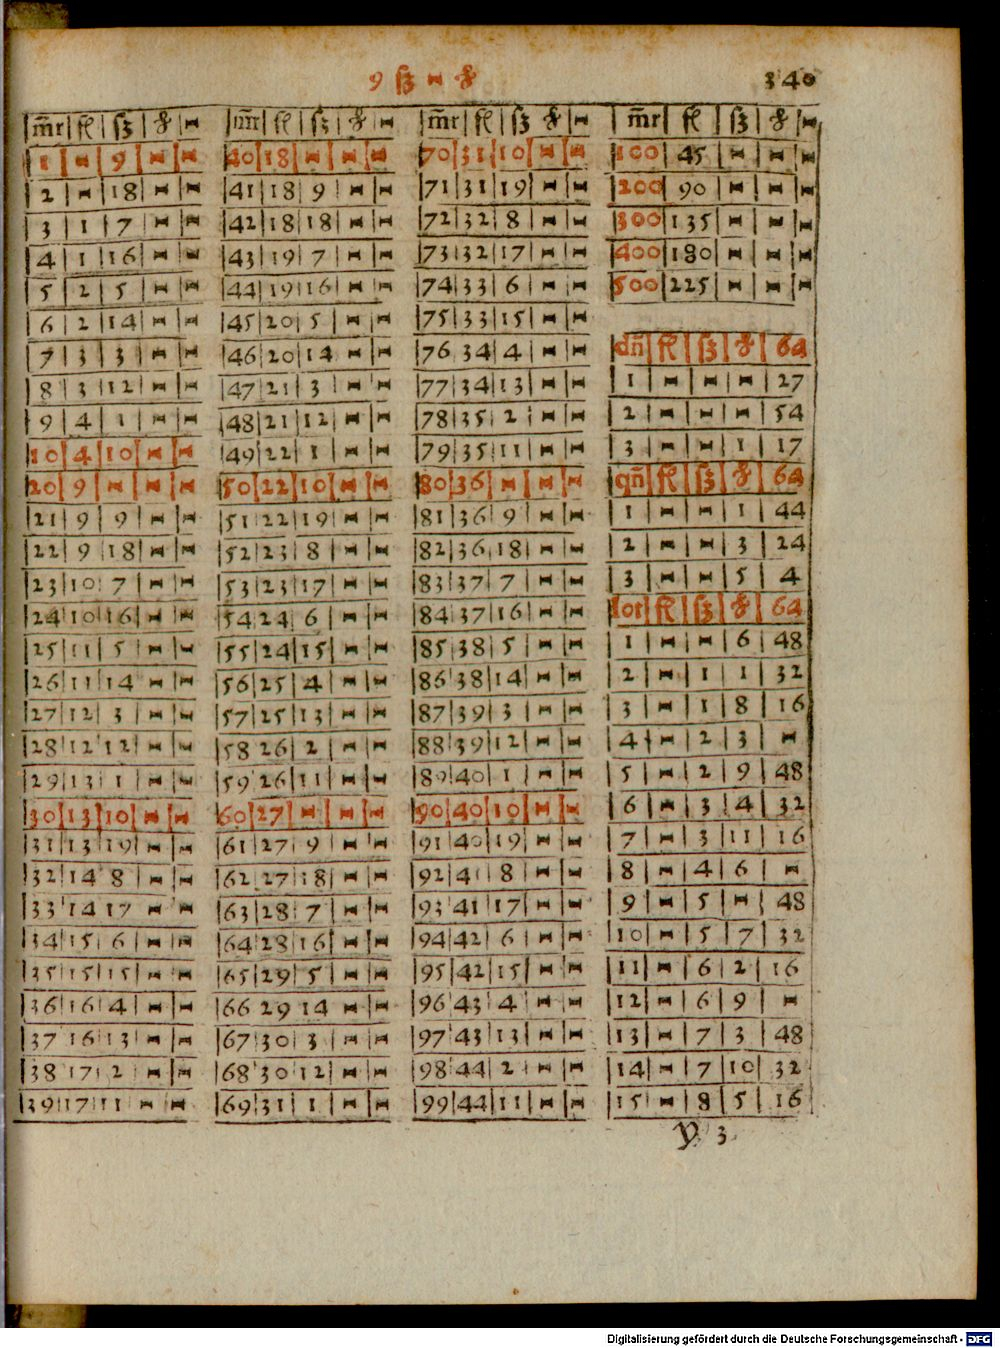 9 ß ⋈ ₰ 340
m̄r fl ß ₰ ⋈
1 ⋈ 9 ⋈ ⋈
2 ⋈ 18 ⋈ ⋈
3 1 7 ⋈ ⋈
4 1 16 ⋈ ⋈
5 2 5 ⋈ ⋈
6 2 14 ⋈ ⋈
7 3 3 ⋈ ⋈
8 3 12 ⋈ ⋈
9 4 1 ⋈ ⋈
10 4 10 ⋈ ⋈
20 9 ⋈ ⋈ ⋈
21 9 9 ⋈ ⋈
22 9 18 ⋈ ⋈
23 10 7 ⋈ ⋈
24 10 16 ⋈ ⋈
25 11 5 ⋈ ⋈
26 11 14 ⋈ ⋈
27 12 3 ⋈ ⋈
28 12 12 ⋈ ⋈
29 13 1 ⋈ ⋈
30 13 10 ⋈ ⋈
31 13 19 ⋈ ⋈
32 14 8 ⋈ ⋈
33 14 17 ⋈ ⋈
34 15 6 ⋈ ⋈
35 15 15 ⋈ ⋈
36 16 4 ⋈ ⋈
37 16 13 ⋈ ⋈
38 17 2 ⋈ ⋈
39 17 11 ⋈ ⋈
m̄r fl ß ₰ ⋈
40 18 ⋈ ⋈ ⋈
41 18 9 ⋈ ⋈
42 18 18 ⋈ ⋈
43 19 7 ⋈ ⋈
44 19 16 ⋈ ⋈
45 20 5 ⋈ ⋈
46 20 14 ⋈ ⋈
47 21 3 ⋈ ⋈
48 21 12 ⋈ ⋈
49 22 1 ⋈ ⋈
50 22 10 ⋈ ⋈
51 22 19 ⋈ ⋈
52 23 8 ⋈ ⋈
53 23 17 ⋈ ⋈
54 24 6 ⋈ ⋈
55 24 15 ⋈ ⋈
56 25 4 ⋈ ⋈
57 25 13 ⋈ ⋈
58 26 2 ⋈ ⋈
59 26 11 ⋈ ⋈
60 27 ⋈ ⋈ ⋈
61 27 9 ⋈ ⋈
62 27 18 ⋈ ⋈
63 28 7 ⋈ ⋈
64 28 16 ⋈ ⋈
65 29 5 ⋈ ⋈
66 29 14 ⋈ ⋈
67 30 3 ⋈ ⋈
68 30 12 ⋈ ⋈
69 31 1 ⋈ ⋈
m̄r fl ß ₰ ⋈
70 31 10 ⋈ ⋈
71 31 19 ⋈ ⋈
72 32 8 ⋈ ⋈
73 32 17 ⋈ ⋈
74 33 6 ⋈ ⋈
75 33 15 ⋈ ⋈
76 34 4 ⋈ ⋈
77 34 13 ⋈ ⋈
78 35 2 ⋈ ⋈
79 35 11 ⋈ ⋈
80 36 ⋈ ⋈ ⋈
81 36 9 ⋈ ⋈
82 36 18 ⋈ ⋈
83 37 7 ⋈ ⋈
84 37 16 ⋈ ⋈
85 38 5 ⋈ ⋈
86 38 14 ⋈ ⋈
87 39 3 ⋈ ⋈
88 39 12 ⋈ ⋈
89 40 1 ⋈ ⋈
90 40 10 ⋈ ⋈
91 40 19 ⋈ ⋈
92 41 8 ⋈ ⋈
93 41 17 ⋈ ⋈
94 42 6 ⋈ ⋈
95 42 15 ⋈ ⋈
96 43 4 ⋈ ⋈
97 43 13 ⋈ ⋈
98 44 2 ⋈ ⋈
99 44 11 ⋈ ⋈
m̄r fl ß ₰ ⋈
100 45 ⋈ ⋈ ⋈
200 90 ⋈ ⋈ ⋈
300 135 ⋈ ⋈ ⋈
400 180 ⋈ ⋈ ⋈
500 225 ⋈ ⋈ ⋈
dn̄ fl ß ₰ 64
1 ⋈ ⋈ ⋈ 27
2 ⋈ ⋈ ⋈ 54
3 ⋈ ⋈ 1 17
qn̄ fl ß ₰ 64
1 ⋈ ⋈ 1 44
2 ⋈ ⋈ 3 24
3 ⋈ ⋈ 5 4
lot fl ß ₰ 64
1 ⋈ ⋈ 6 48
2 ⋈ 1 1 32
3 ⋈ 1 8 16
4 ⋈ 2 3 ⋈
5 ⋈ 2 9 48
6 ⋈ 3 4 32
7 ⋈ 3 11 16
8 ⋈ 4 6 ⋈
9 ⋈ 5 ⋈ 48
10 ⋈ 5 7 32
11 ⋈ 6 2 16
12 ⋈ 6 9 ⋈
13 ⋈ 7 3 48
14 ⋈ 7 10 32
15 ⋈ 8 5 16
Y 3
Digitalisierung gefördert durch die Deutsche Forschungsgemeinschaft - DFG